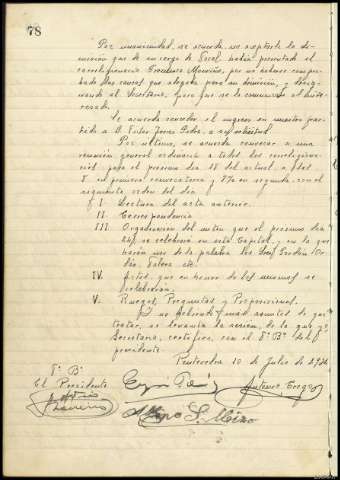 78
Por unanimidad, se acuerda no aceptarle la di-
misión que de su cargo de Vocal había presentado el
correligionario Mariño, por no haber compro-
bado las causas que alegaba para su dimisión, y
al Secretario, para que se lo comunique al inte-
resado.
Se acuerda conceder el ingreso en nuestro par-
tido a D. Víctor a su solicitud.
Por último, se acuerda convocar a una
reunión general ordinaria a todos los correligiona-
rios para el próximo día 18 del actual a las
8 en primera convocatoria y en segunda con el
siguiente orden del día
I. Lectura del acta anterior.
II. Correspondencia
III. Organización del mitin que el próximo día
se celebrará en esta Capital, y en la que
harán uso de la palabra los
IV. Actos que en honor de los mismos se
celebrarán.
V. Ruegos, Preguntas y Proposiciones.
Y no habiendo más asuntos de que
tratar, se levanta la sesión, de la que yo
Secretario, certifico, con el Vº Bº del
presidente.
Pontevedra 10 de Julio de
Vº Bº
El Presidente